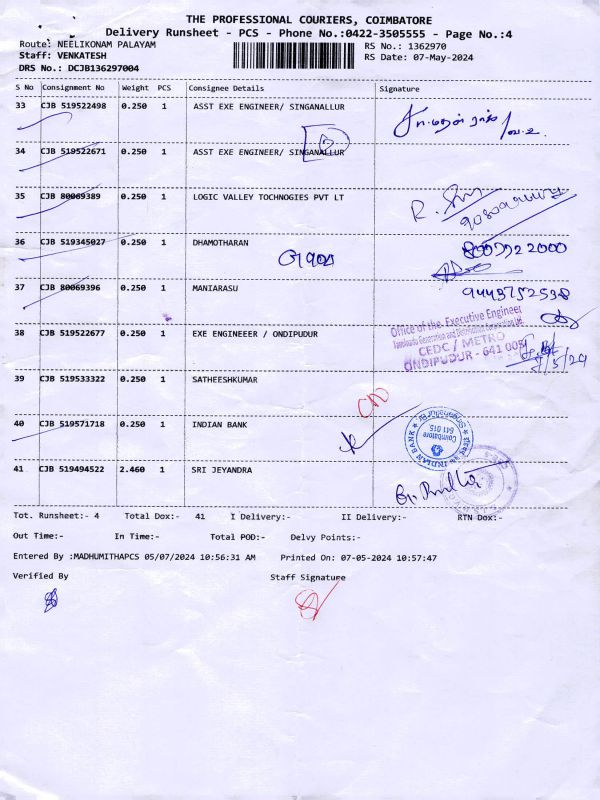 THE PROFESSIONAL COURIERS, COIMBATORE
Delivery Runsheet - PCS - Phone No.:0422-3505555 - Page No.:4
Route: NEELIKONAM PALAYAM RS No.: 1362970
Staff: VENKATESH RS Date: 07-May-2024
DRS No.: DCJB136297004
S No Consignment No Weight PCS Consignee Details Signature
33 CJB 519522498 0.250 1 ASST EXE ENGINEER/ SINGANALLUR
34 CJB 519522671 0.250 1 ASST EXE ENGINEER/ SINGANALLUR
35 CJB 80069389 0.250 1 LOGIC VALLEY TOCHNOGIES PVT LT
36 CJB 519345027 0.250 1 DHAMOTHARAN
37 CJB 80069396 0.250 1 MANIARASU
9443752538
38 CJB 519522677 0.250 1 EXE ENGINEEER / ONDIPUDUR
Office of the Executive Engineer
CEDC / METRO
ONDIPUDUR - 641 005
39 CJB 519533322 0.250 1 SATHEESHKUMAR
40 CJB 519571718 0.250 1 INDIAN BANK
INDIAN BANK
Coimbatore
641 015
41 CJB 519494522 2.460 1 SRI JEYANDRA
Tot. Runsheet:- 4 Total Dox:- 41 I Delivery:- II Delivery:- RTN Dox:-
Out Time:- In Time:- Total POD:- Delvy Points:-
Entered By :MADHUMITHAPCS 05/07/2024 10:56:31 AM Printed On: 07-05-2024 10:57:47
Verified By Staff Signature